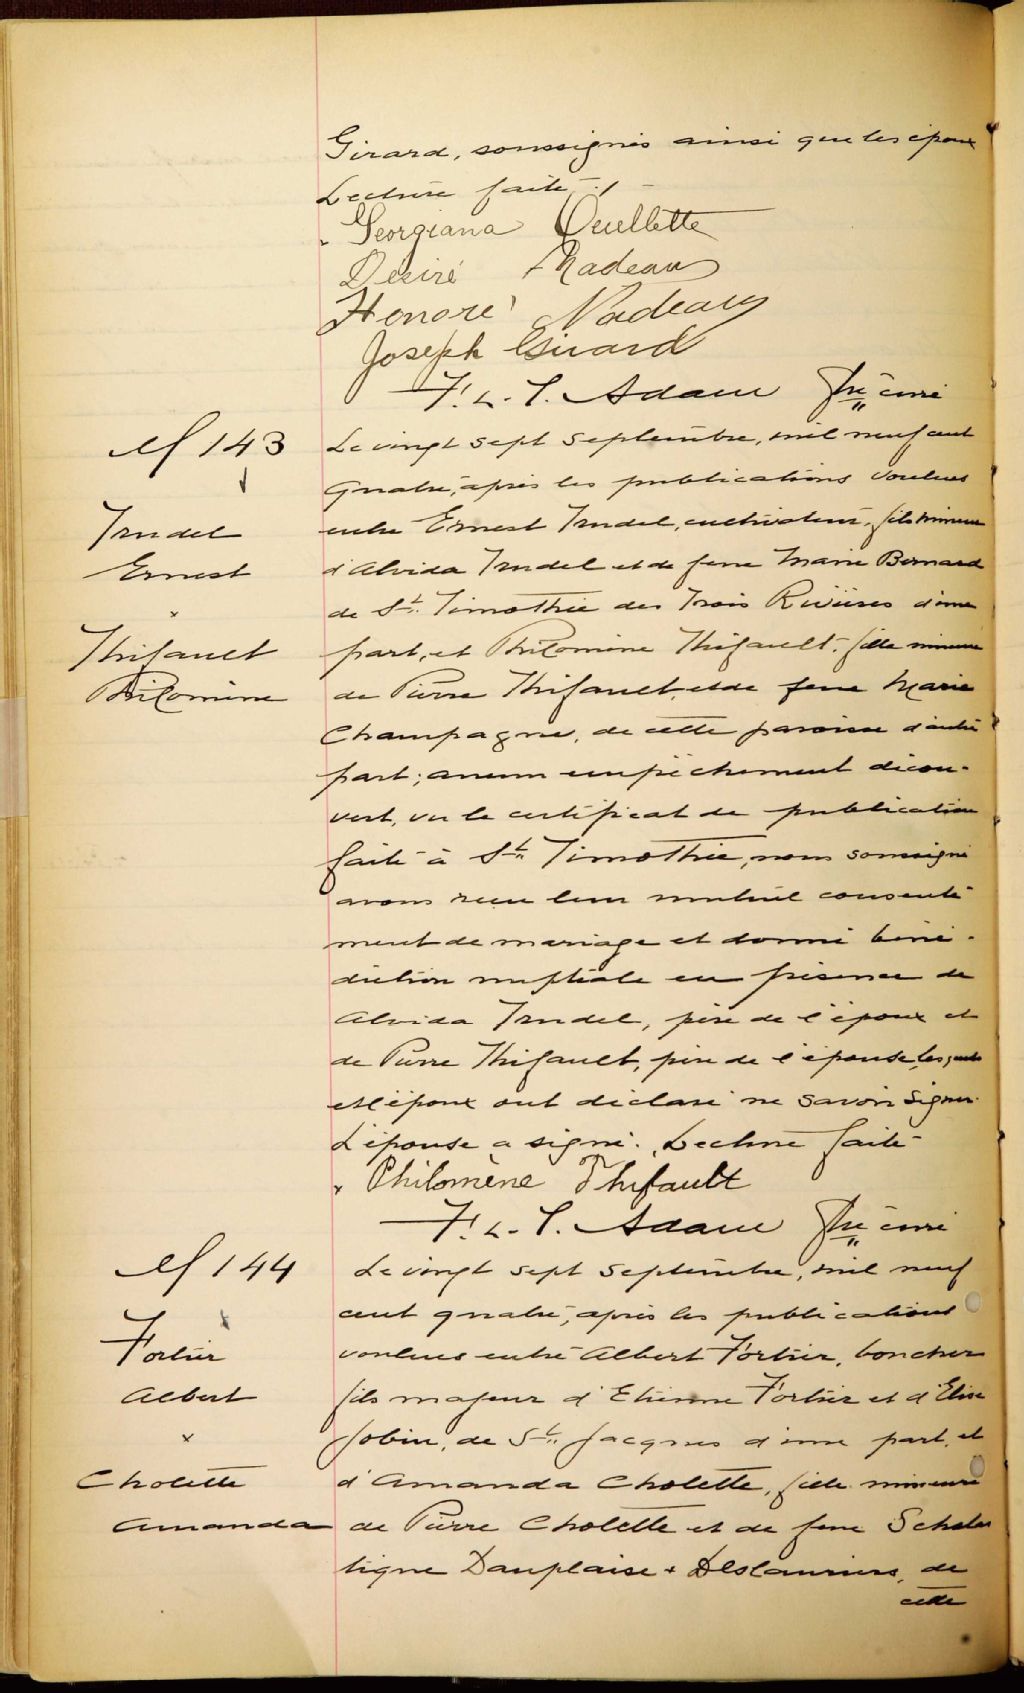 Girard, soussignés ainsi que les époux
Lecture faite ./.
Georgiana Ouellette
Desiré Nadeau
Honoré Nadeau
Joseph Girard
F. L. T. Adam Ptre curé
M 143
Trudel
Ernest
x
Thifault
Philomène
Le vingt sept septembre, mil neuf cent
quatre, après les publications voulues
entre Ernest Trudel, cultivateur, fils mineur
d'Alvida Trudel et de feue Marie Bernard
de St. Timothée des Trois Rivières d'une
part, et Philomène Thifault, fille mineure
de Pierre Thifault, et de feue Marie
Champagne, de cette paroisse d'autre
part; aucun empêchement décou-
vert, vu le certificat de publication
faite à St. Timothée, nous soussigné
avons reçu leur mutuel consente
ment de mariage et donné béné-
diction nuptiale en présence de
Alvida Trudel, père de l'époux et
de Pierre Thifault, père de l'épouse, lesquels
et l'époux ont déclaré ne savoir signer.
L'épouse a signé. Lecture faite
Philomène Thifault
F. L. T. Adam Ptre curé
M 144
Fortier
Albert
x
Cholette
Amanda
Le vingt sept septembre, mil neuf
cent quatre, après les publications
voulues entre Albert Fortier, boucher
fils majeur d'Etienne Fortier et d'Elise
Jobin, de St. Jacques d'une part, et
d'Amanda Cholette, fille mineure
de Pierre Cholette et de feue Scholas
tique Dauplaise + Deslauriers, de
cette